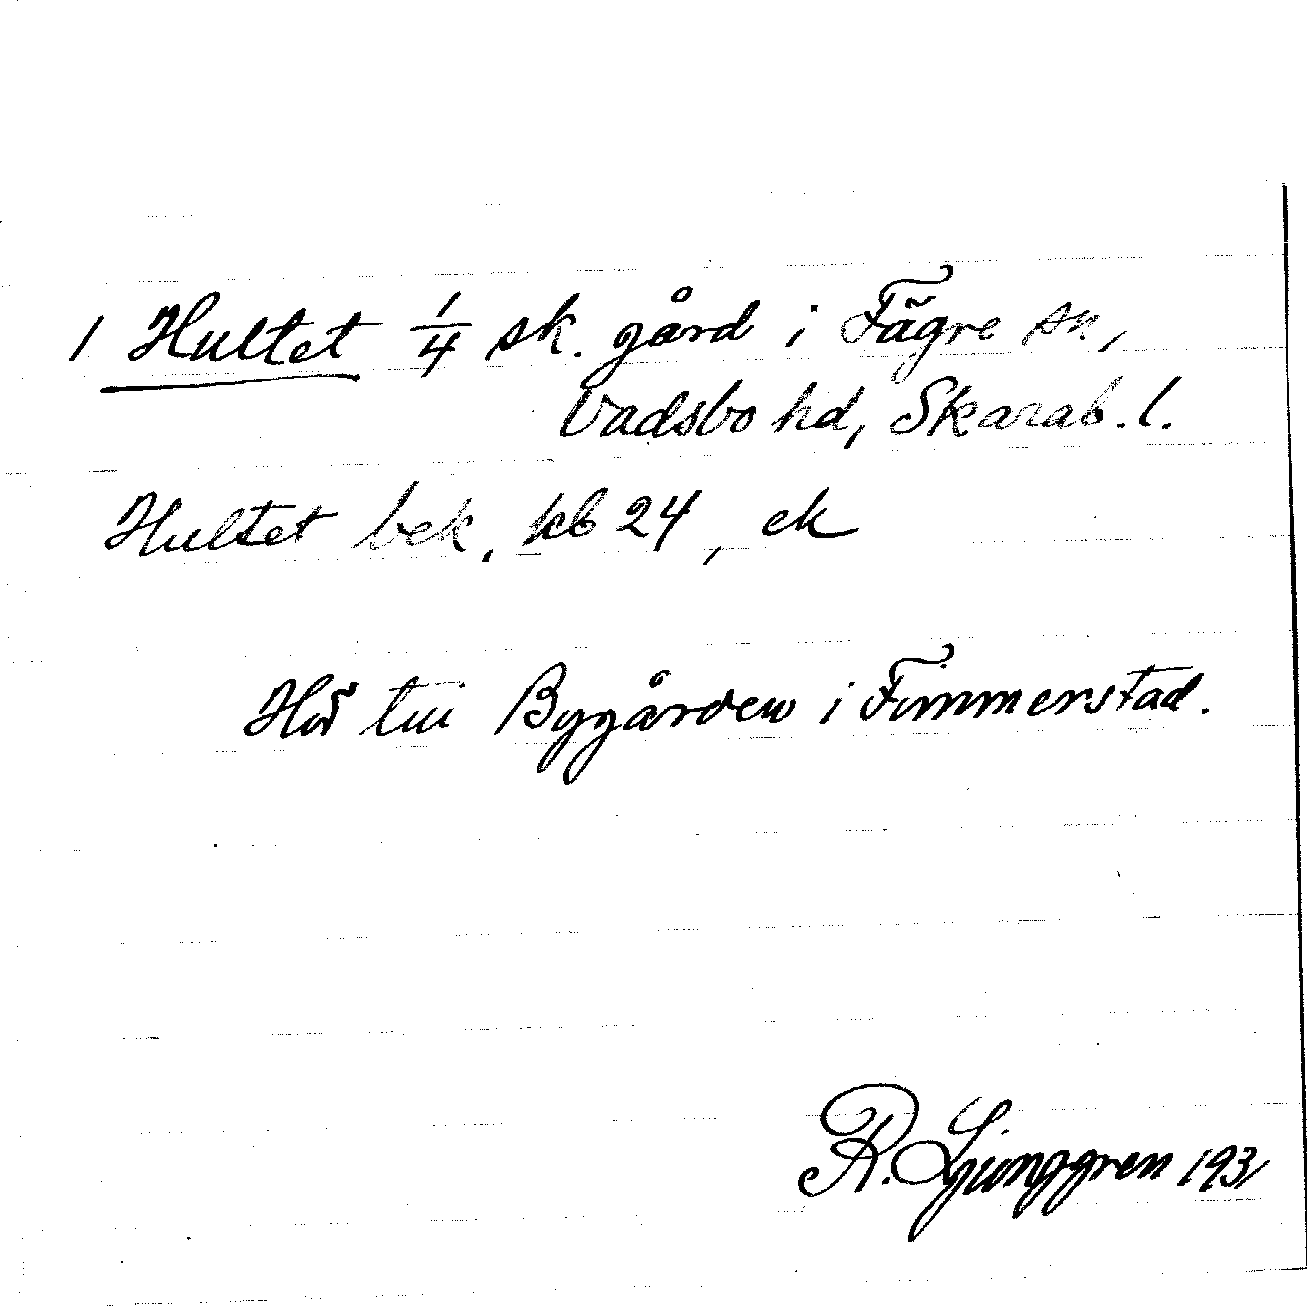 1 Hultet 1/4 sk. gård i Fägre sn,
Vadsbo hd, Skarab. l.
Hultet bek. kb 24, ek
Hör till Bygården i Fimmerstad.
R. Ljunggren 1931